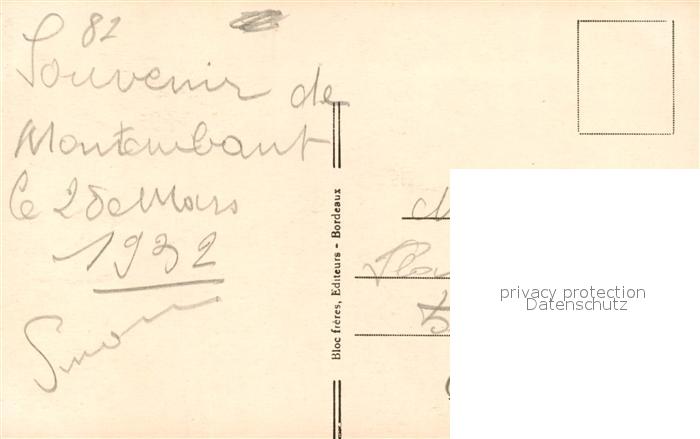 82
Souvenir de
Montembaut
le 25 Mars
1932
Bloc frères, Editeurs - Bordeaux
privacy protection
Datenschutz